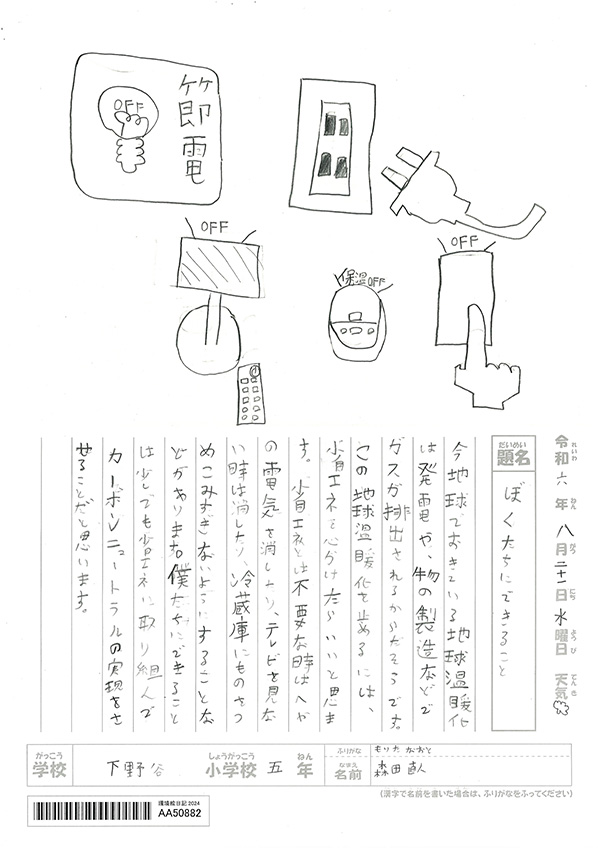 OFF
節電
OFF
保温OFF
OFF
令和六年八月二十一日水曜日 天気
れいわ ねん がつ にち ようび てんき
だいめい
題名
ぼくたちにできること
今地球でおきている地球温暖化
は発電や、物の製造などで
ガスが排出されるからだそうです。
この地球温暖化を止めるには、
省エネを心がけたらいいと思いま
す。省エネとは不要な時はへや
の電気を消したり、テレビを見な
い時は消したり、冷蔵庫にものをつ
めこみすぎないようにすることな
どがあります。僕たちにできること
は少しでも省エネに取り組んで
カーボンニュートラルの実現をさ
せることだと思います。
がっこう
学校
下野谷
しょうがっこう
小学校
五
ねん
年
ふりがな
もりた なおと
なまえ
名前
森田直人
(漢字で名前を書いた場合は、ふりがなをふってください)
環境絵日記2024
AA50882